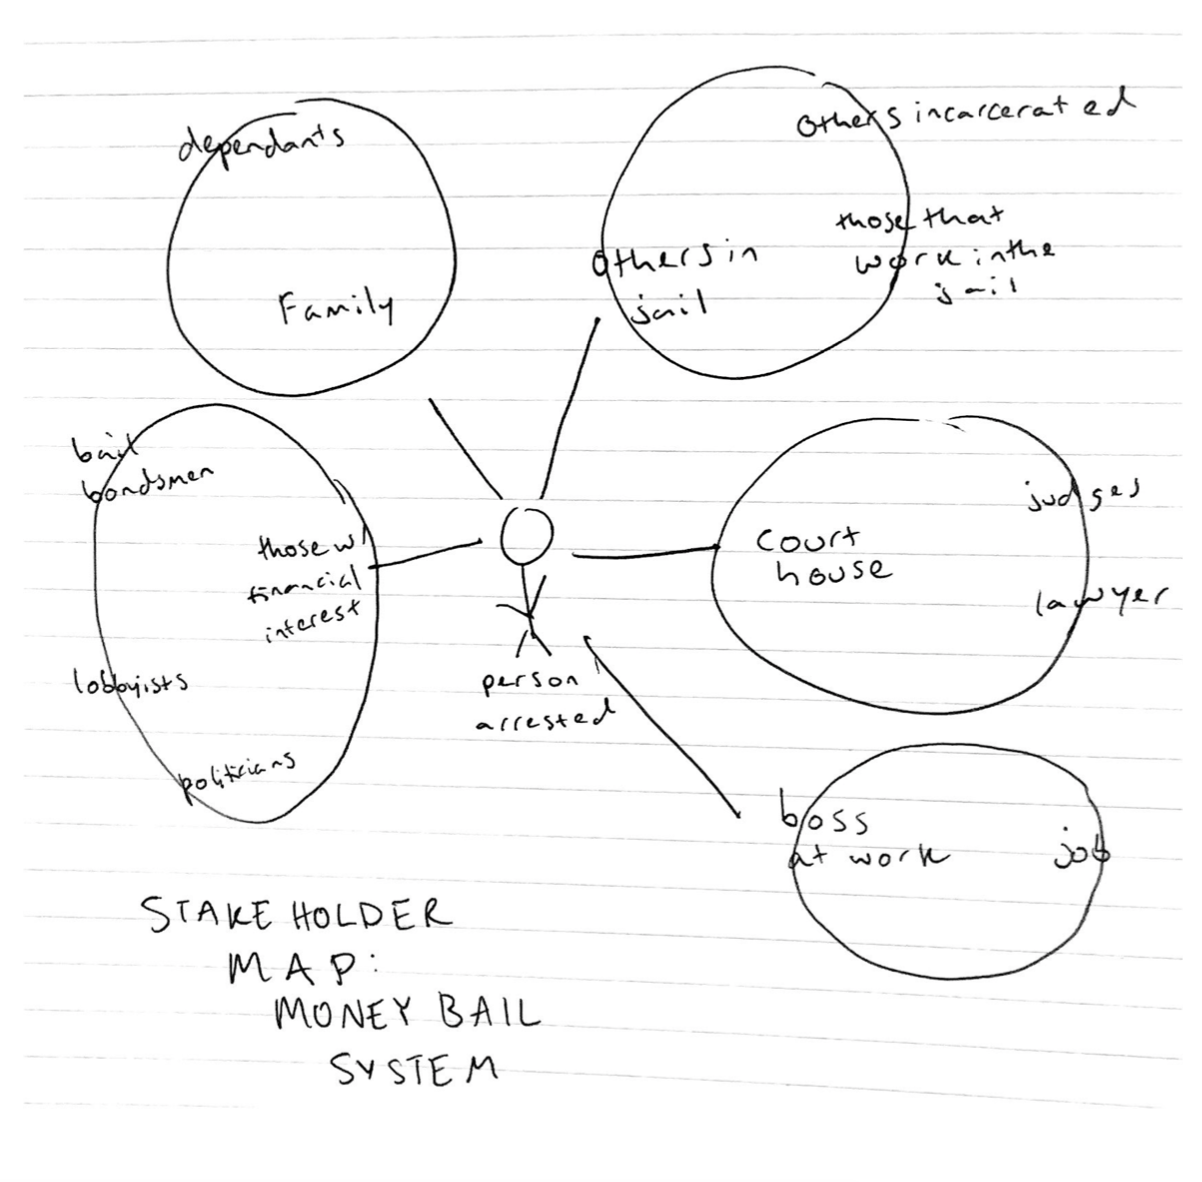 dependants
Family
Others incarcerated
those that
work in the
jail
Others in
jail
bail
bondsmen
those w/
financial
interest
lobbyists
politicians
person
arrested
court
house
judges
lawyer
boss
at work
job
STAKE HOLDER
MAP:
MONEY BAIL
SYSTEM